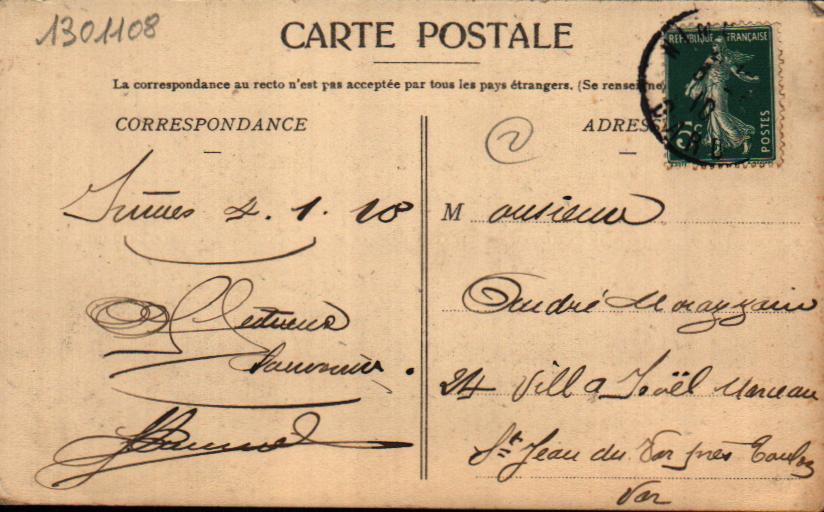 1301108
CARTE POSTALE
La correspondance au recto n'est pas acceptée par tous les pays étrangers. (Se renseigne
CORRESPONDANCE
ADRES
2
REPUBLIQUE FRANÇAISE
5c
POSTES
Nîmes 4.1.10
Monsieur
Affectueux
André Morazzani
Souvenir.
24 Villa Joël Marceau
St Jean du Var près Toulon
Var